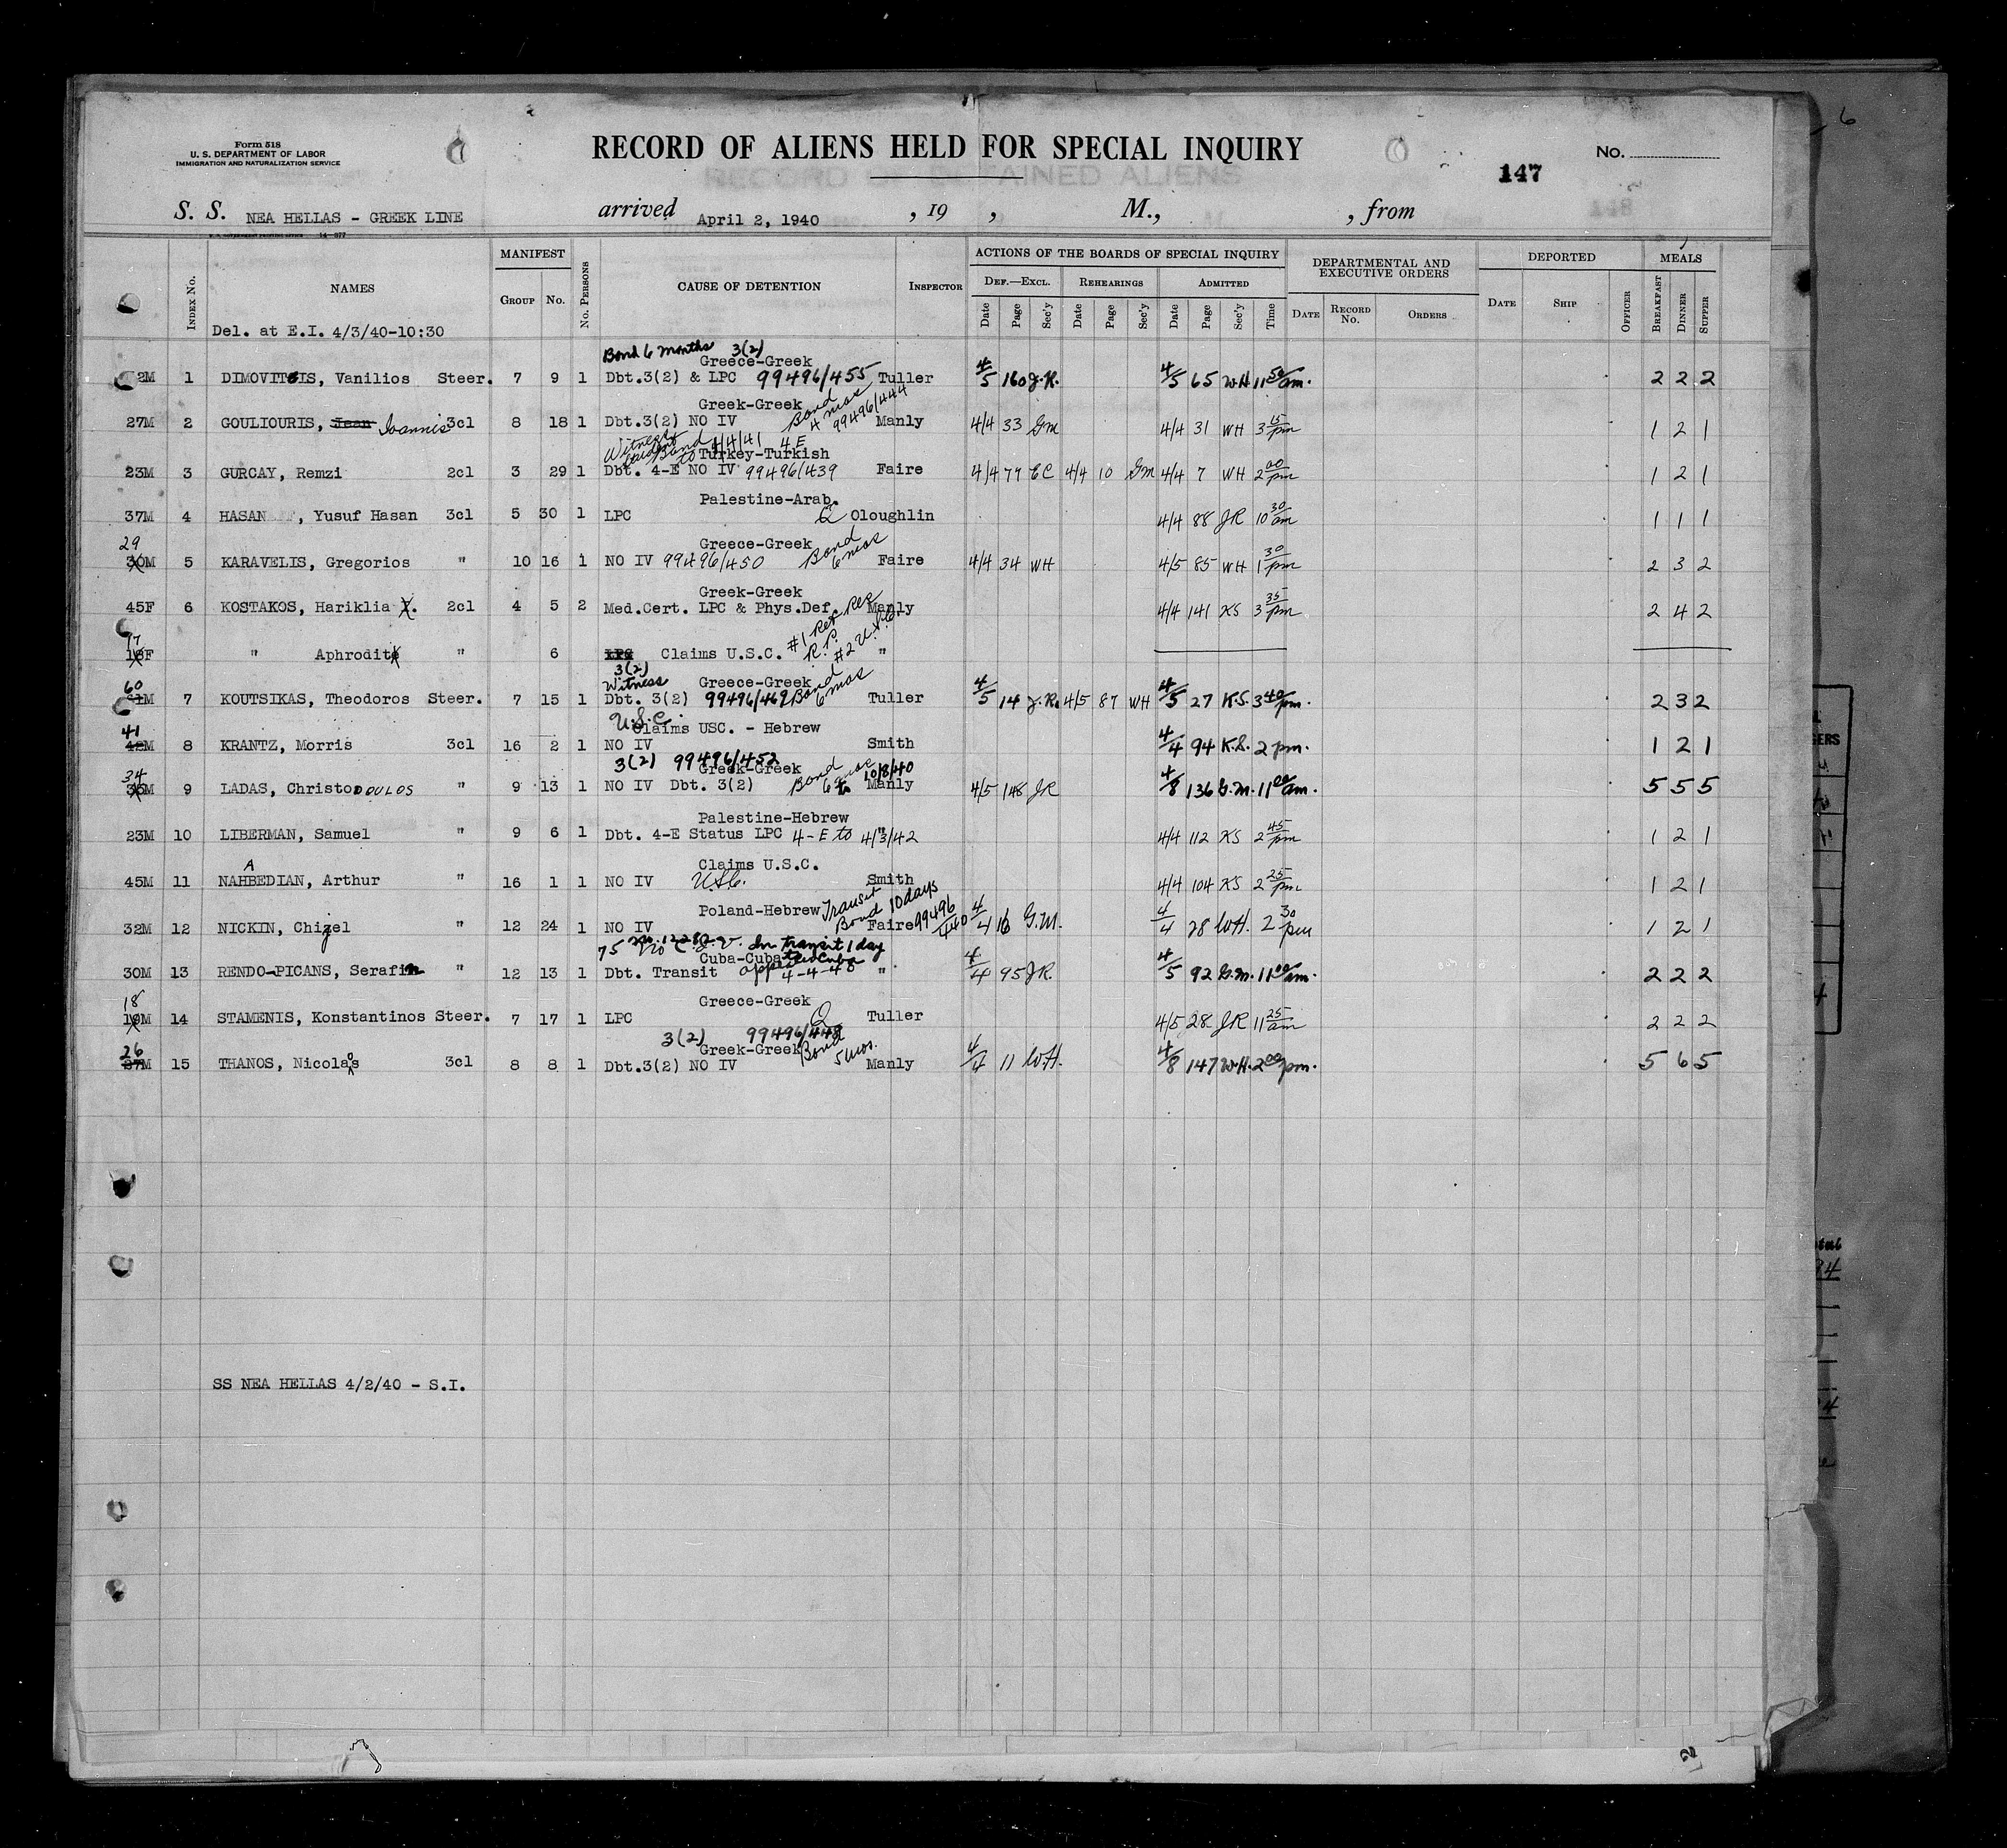 Form 518
U. S. DEPARTMENT OF LABOR
IMMIGRATION AND NATURALIZATION SERVICE
RECORD OF ALIENS HELD FOR SPECIAL INQUIRY
No.
147
S. S. NEA HELLAS - GREEK LINE arrived April 2, 1940 , 19 , M., , from
INDEX No. NAMES MANIFEST GROUP No. No. PERSONS CAUSE OF DETENTION INSPECTOR ACTIONS OF THE BOARDS OF SPECIAL INQUIRY DEPARTMENTAL AND EXECUTIVE ORDERS DEPORTED MEALS
DEF.—EXCL. REHEARINGS ADMITTED
Date Page Sec'y Date Page Sec'y Date Page Sec'y Time DATE RECORD No. ORDERS DATE SHIP OFFICER BREAKFAST DINNER SUPPER
Del. at E.I. 4/3/40-10:30
Bond 6 months 3(2)
Greece-Greek
2M 1 DIMOVITSIS, Vanilios Steer. 7 9 1 Dbt.3(2) & LPC 99496/455 Tuller 4/5 160 J.R. 4/5 65 W.H. 11 50 am. 2 2 2
Greek-Greek
27M 2 GOULIOURIS, Jean Ioannis 3cl 8 18 1 Dbt.3(2) NO IV Bond 4 mos 99496/444 Manly 4/4 33 GM 4/4 31 WH 3 15 pm 1 2 1
Witness Bond to 4/4/41 4E
Turkey-Turkish
23M 3 GURCAY, Remzi 2cl 3 29 1 Dbt. 4-E NO IV 99496/439 Faire 4/4 77 EC 4/4 10 GM 4/4 7 WH 2 00 pm 1 2 1
Palestine-Arab.
37M 4 HASAN , Yusuf Hasan 3cl 5 30 1 LPC Q Oloughlin 4/4 88 JR 10 30 am 1 1 1
Greece-Greek
29
30M 5 KARAVELIS, Gregorios " 10 16 1 NO IV 99496/450 Bond 6 mos Faire 4/4 34 WH 4/5 85 WH 1 30 pm 2 3 2
Greek-Greek
45F 6 KOSTAKOS, Hariklia 2cl 4 5 2 Med.Cert. LPC & Phys.Def. Manly 4/4 141 KS 3 35 pm 2 4 2
17
18F " Aphrodite " 6 LPC Claims U.S.C. #1 Ret Res R.P. #2 U.S.C. "
3(2)
Witness Greece-Greek
60
61M 7 KOUTSIKAS, Theodoros Steer. 7 15 1 Dbt. 3(2) 99496/469 Bond 6 mos Tuller 4/5 14 J.R. 4/5 87 WH 4/5 27 K.S. 3 40 pm. 2 3 2
U.S.C.
Claims USC. - Hebrew
41
42M 8 KRANTZ, Morris 3cl 16 2 1 NO IV Smith 4/4 94 K.S. 2 pm. 1 2 1
3(2) 99496/452
Greek-Greek
34
35M 9 LADAS, Christo DOULOS " 9 13 1 NO IV Dbt. 3(2) Bond 6 mos to 10/8/40 Manly 4/5 148 JR 4/8 136 G.M. 11 00 am. 5 5 5
Palestine-Hebrew
23M 10 LIBERMAN, Samuel " 9 6 1 Dbt. 4-E Status LPC 4-E to 4/3/42 " 4/4 112 KS 2 45 pm 1 2 1
Claims U.S.C.
A
45M 11 NAHBEDIAN, Arthur " 16 1 1 NO IV U.S.C. Smith 4/4 104 KS 2 25 pm 1 2 1
Poland-Hebrew Transit Bond 10 days
32M 12 NICKIN, Chizel " 12 24 1 NO IV Faire 99496/440 4/4 16 G.M. 4/4 28 W.H. 2 30 pm 1 2 1
In transit 1 day
Cuba-Cuba
30M 13 RENDO-PICANS, Serafin " 12 13 1 Dbt. Transit 4-4-40 " 4/4 95 J.R. 4/5 92 G.M. 11 00 am. 2 2 2
Greece-Greek
18
19M 14 STAMENIS, Konstantinos Steer. 7 17 1 LPC Q Tuller 4/5 28 JR 11 25 am 2 2 2
3(2) 99496/448
Greek-Greek Bond 5 mos.
26
27M 15 THANOS, Nicolaos 3cl 8 8 1 Dbt.3(2) NO IV Manly 4/4 11 W.H. 4/8 147 W.H. 2 00 pm. 5 6 5
SS NEA HELLAS 4/2/40 - S.I.